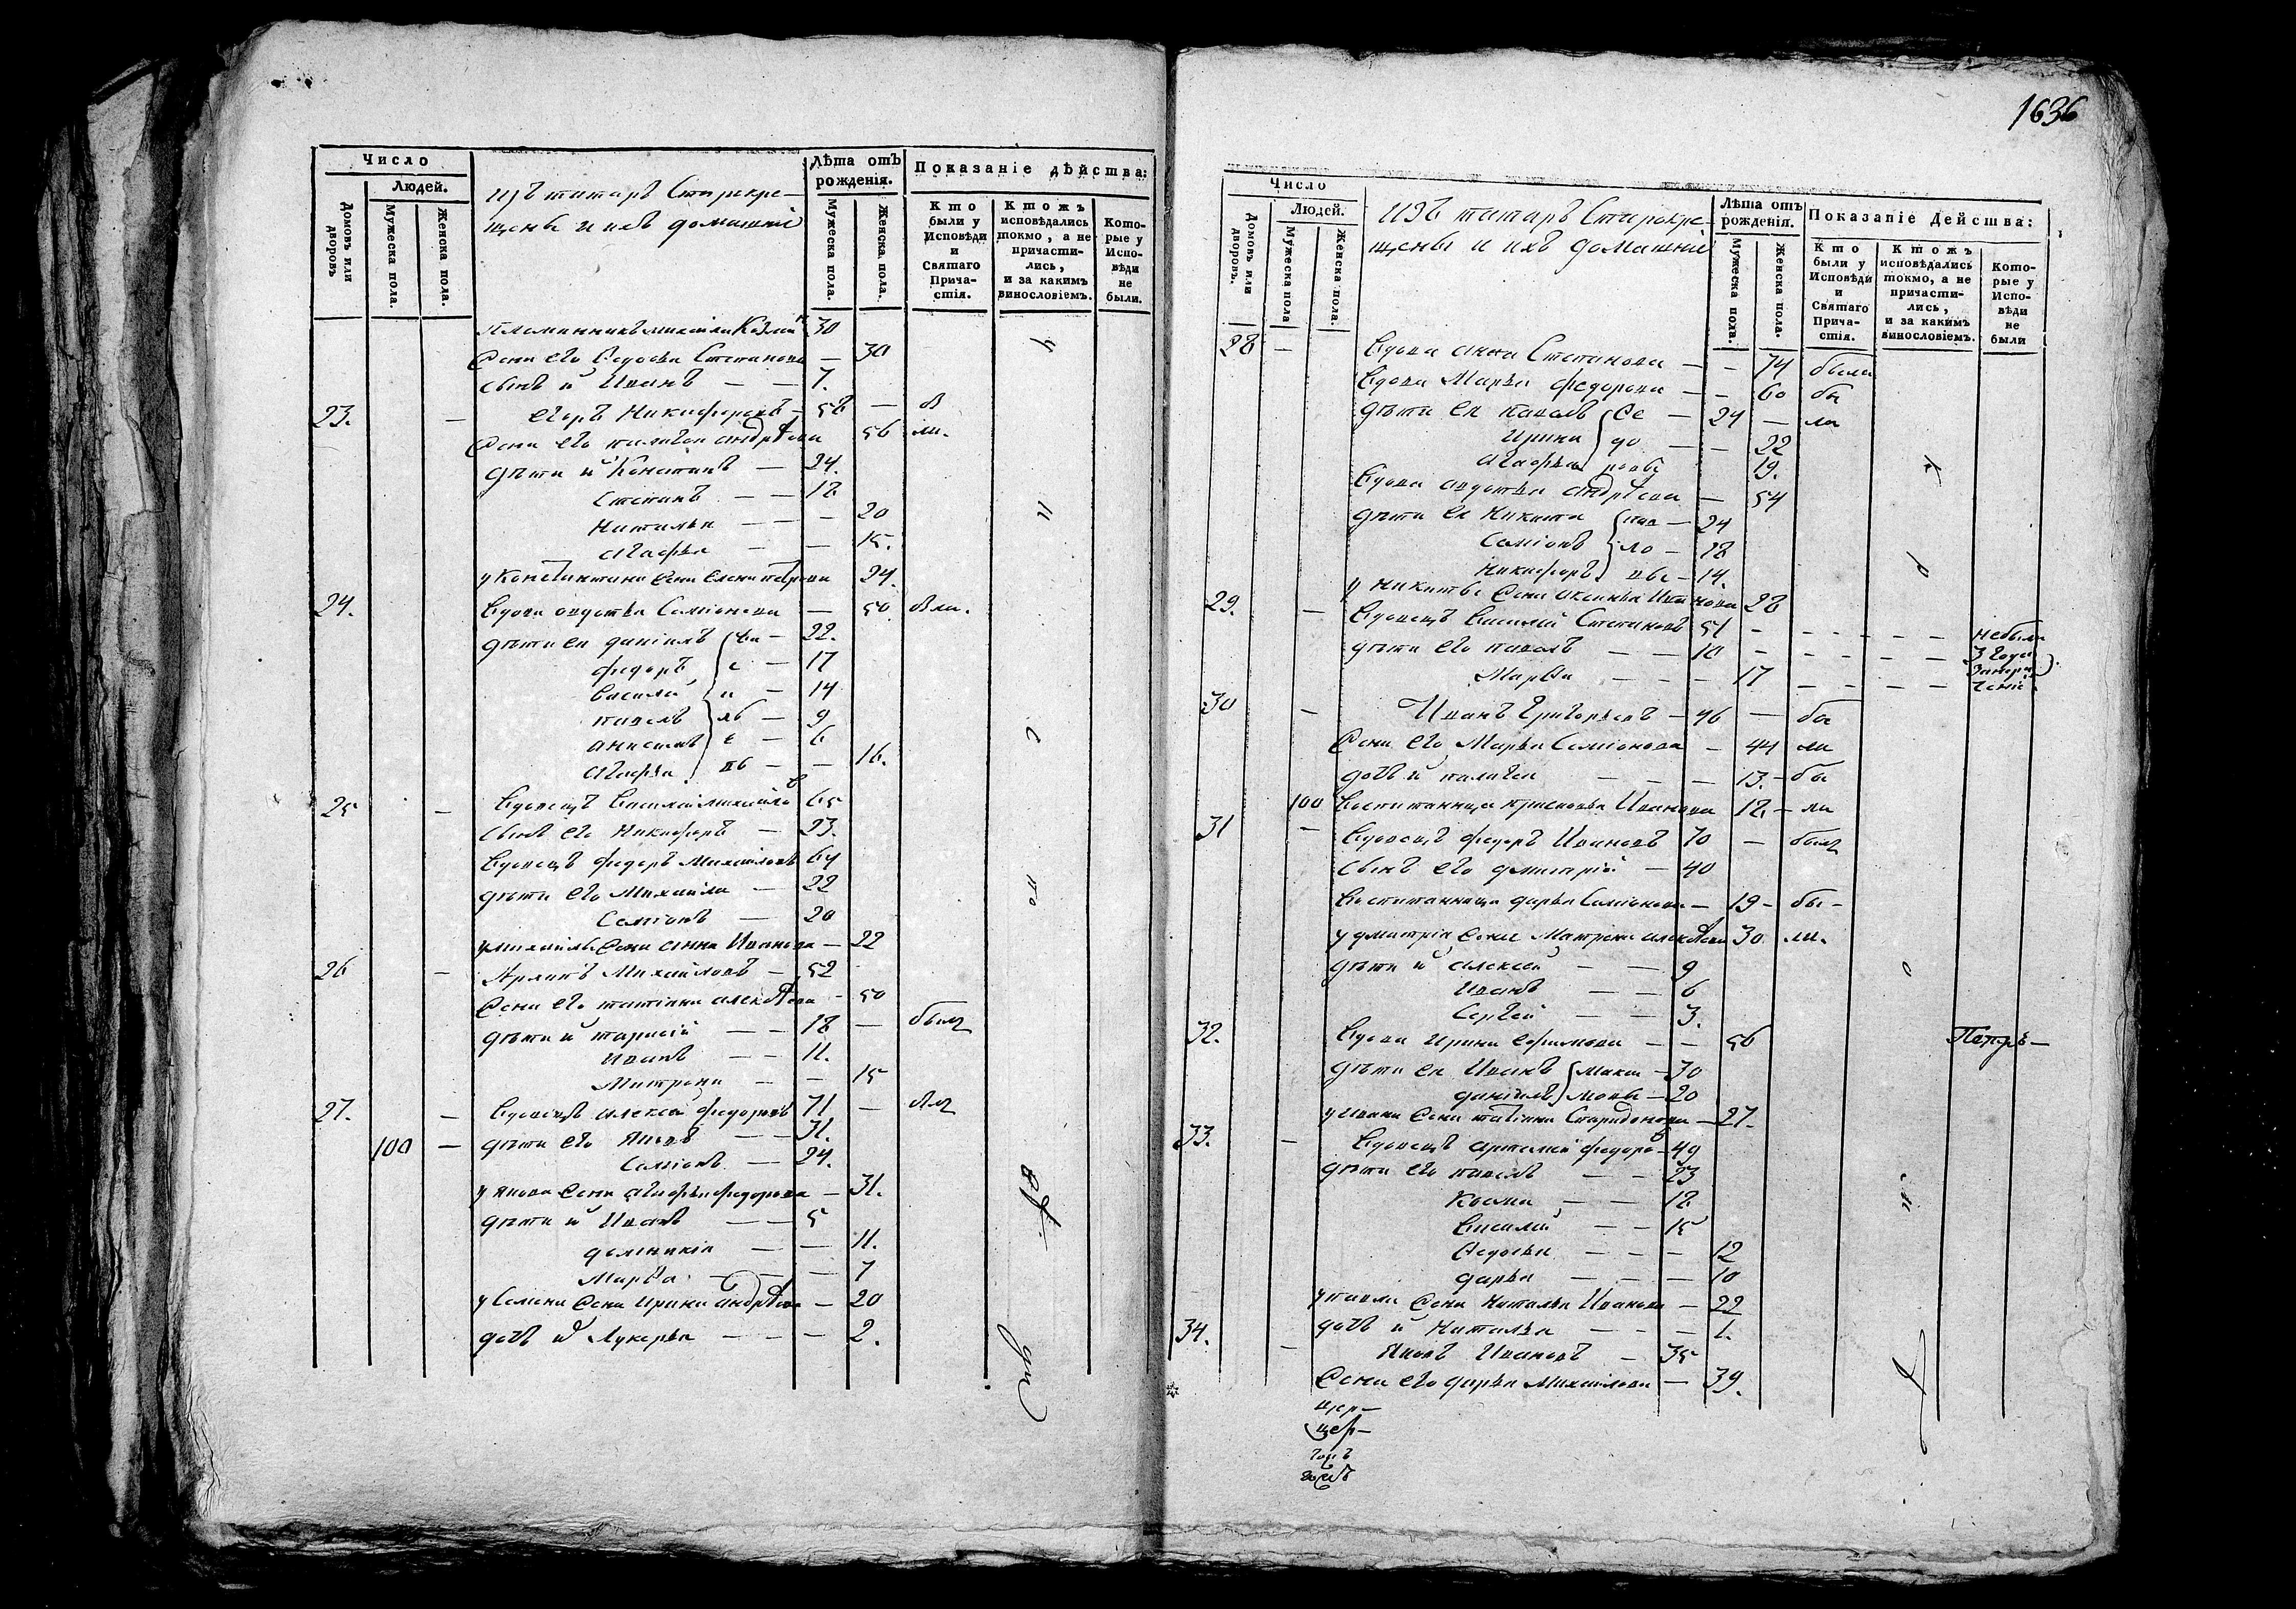 Число
Людей.
Домовъ или дворовъ
Мужеска пола.
Женска пола.
изъ татаръ Старокре-
щены и ихъ домашніе
Лѣта отъ рожденія.
Мужеска пола.
Женска пола.
Показаніе дѣйства:
Кто были у Исповѣди и Святаго Причастія.
Ктожъ исповѣдались токмо, а не причастились, и за какимъ винословіемъ.
Которые у Исповѣди не были.
племянникъ михаила 30
жена его Ѳедосья Степанова — 30
сынъ и Иванъ — — 7.
23. — егоръ Никифоровъ — 58 —
жена его палагея андрѣева 56 ли.
дѣти и — 24.
Степанъ — — 18
Наталья — — — 20
агафья — — 15.
у константина жена елена петрова 24.
24. вдова авдотья Семіонова — 50
дѣти ея даніилъ — 22.
федоръ — 17
василій — 14
павелъ — 9
— 6
агафья — — 16.
25 — вдовецъ Василій михайловъ 65
сынъ его Никифоръ — 23.
вдовецъ федоръ Михайловъ 64
дѣти его Михайла — 22
Семіонъ — 20
у михайлы жена анна Иванова — 22
26 — Михайловъ — 52
жена его татіана алексѣева — 50
дѣти и тарасій — — 18 — былъ
Иванъ — — 11.
Матрена — — 15
27. — вдовецъ алексей федоровъ 71 —
100 — дѣти его Яковъ — — 31.
Семіонъ — 24.
у якова жена агафья федорова — 31.
дѣти и Иванъ — — 5
— — 11.
Марѳа — — — 7
у Семена жена ирина андрѣева — 20
дочь и Лукерья — — — 2.
1636
Число
Людей.
Домовъ или дворовъ.
Мужеска пола
Женска пола.
изъ татаръ Старокре-
щены и ихъ домашніе
Лѣта отъ рожденія.
Мужеска пола.
Женска пола.
Показаніе Действа:
Кто были у Исповѣди и Святаго Причастія.
Ктожъ исповѣдались токмо, а не причастились, и за какимъ винословіемъ.
Которые у Исповѣди не были
28 — вдова анна Степанова — — 74 была
вдова Марья федорова — — 60 бы
дѣти ея павелъ — 24 — ли
ирина — — 22
агафья 19.
вдова авдотья андрѣева — 54
дѣти ея Никита — 24
Семіонъ — 18
Никифоръ — 14.
у никиты жена аксинья Иванова 28
29. — вдовецъ Василій Степановъ 51 — — — — — — небыли
дѣти его павелъ — — 10 — — — — — —
Марѳа — — — 17 — — — —
30 — Иванъ Григорьевъ — 46 — бы
жена его Марья Семіонова — 44 ли
дочь и палагея — — — 13. — бы
100 воспитанница прасковья Иванова 18. — ли
31 — вдовецъ федоръ Ивановъ 70 — былъ
сынъ его дмитрій — 40
воспитанница дарья Семіонова — 19 — бы —
у дмитрія жена Матрена алексѣева 30. ли.
дѣти и алексей — — 9
Иванъ — — 6
Сергей — — 3.
32. вдова ирина ефимова — — 56
дѣти ея Иванъ — 30
даніилъ — 20
у ивана жена татіана Спиридонова — 27.
33. — вдовецъ артемій федоровъ — 49
дѣти его павелъ — — 23
Косма — — 18
Василій — — 15
Ѳедосья — — — 12
дарья — — — 10
у павла жена Наталья Иванова — 22
дочь и Наталья — — — 1.
34. — Яковъ Ивановъ — 35
жена его дарья михайлова — 39.